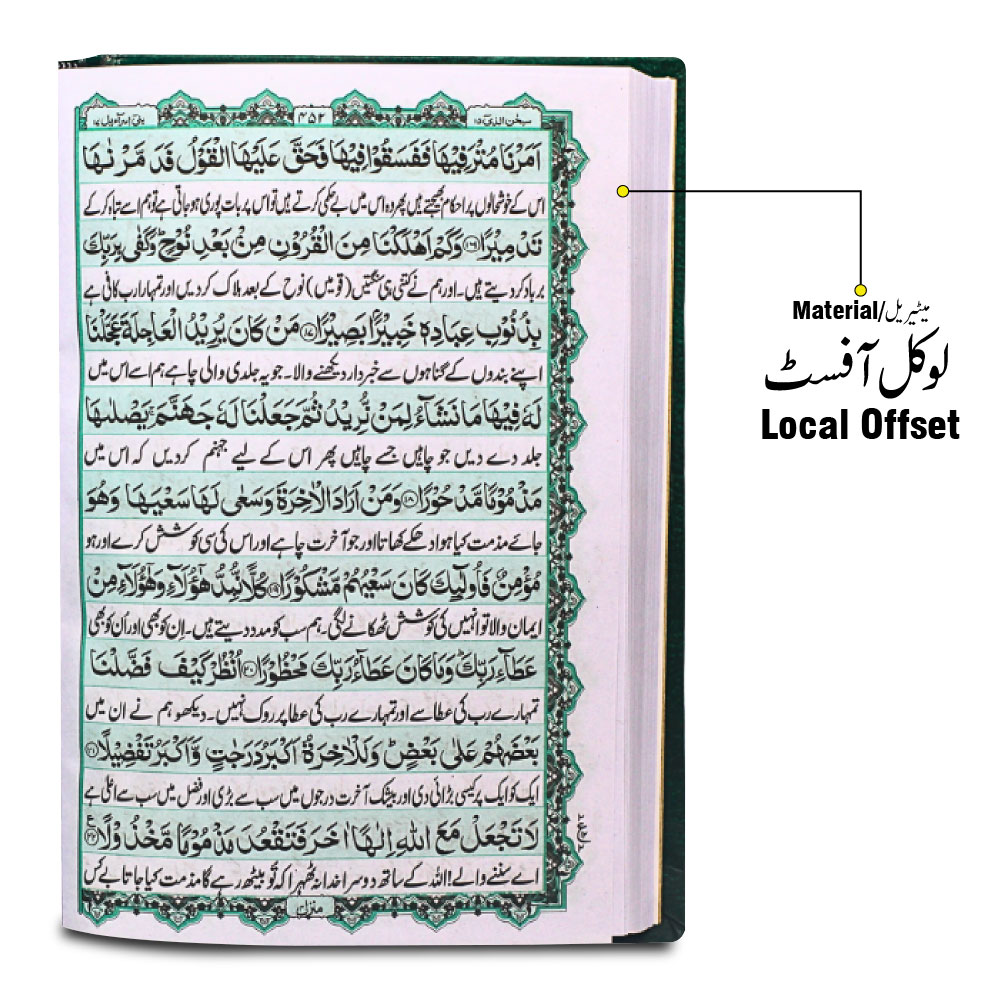 سبحن الذی ۱۵
۴۵۲
بنی اسرآءیل ۱۷
اَمَرْنَا مُتْرَفِیْهَا فَفَسَقُوْا فِیْهَا فَحَقَّ عَلَیْهَا الْقَوْلُ فَدَمَّرْنٰهَا
اس کے خوشحالوں پر احکام بھیجتے ہیں پھر وہ اس میں بے حکمی کرتے ہیں تو اس پر بات پوری ہوجاتی ہے تو ہم اسے تباہ کر کے
تَدْمِیْرًا ﴿۱۶﴾ وَكَمْ اَهْلَكْنَا مِنَ الْقُرُوْنِ مِنْۢ بَعْدِ نُوْحٍ ؕ وَكَفٰی بِرَبِّكَ
برباد کردیتے ہیں۔ اور ہم نے کتنی ہی سنگتیں (قومیں) نوح کے بعد ہلاک کردیں اور تمہارا رب کافی ہے
بِذُنُوْبِ عِبَادِهٖ خَبِیْرًۢا بَصِیْرًا ﴿۱۷﴾ مَنْ كَانَ یُرِیْدُ الْعَاجِلَةَ عَجَّلْنَا
اپنے بندوں کے گناہوں سے خبردار دیکھنے والا۔ جو یہ جلدی والی چاہے ہم اسے اس میں
لَهٗ فِیْهَا مَا نَشَآءُ لِمَنْ نُّرِیْدُ ثُمَّ جَعَلْنَا لَهٗ جَهَنَّمَ ۚ یَصْلٰىهَا
جلد دے دیں جو چاہیں جسے چاہیں پھر اس کے لیے جہنم کردیں کہ اس میں
مَذْمُوْمًا مَّدْحُوْرًا ﴿۱۸﴾ وَمَنْ اَرَادَ الْاٰخِرَةَ وَسَعٰی لَهَا سَعْیَهَا وَهُوَ
جائے مذمت کیا ہوا دھکے کھاتا اور جو آخرت چاہے اور اس کی سی کوشش کرے اور ہو
مُؤْمِنٌ فَاُولٰٓىِٕكَ كَانَ سَعْیُهُمْ مَّشْكُوْرًا ﴿۱۹﴾ كُلًّا نُّمِدُّ هٰۤؤُلَآءِ وَهٰۤؤُلَآءِ مِنْ
ایمان والا تو انہیں کی کوشش ٹھکانے لگی۔ ہم سب کو مدد دیتے ہیں۔ اِن کو بھی اور اُن کو بھی
عَطَآءِ رَبِّكَ ؕ وَمَا كَانَ عَطَآءُ رَبِّكَ مَحْظُوْرًا ﴿۲۰﴾ اُنْظُرْ كَیْفَ فَضَّلْنَا
تمہارے رب کی عطا سے اور تمہارے رب کی عطا پر روک نہیں۔ دیکھو ہم نے ان میں
بَعْضَهُمْ عَلٰی بَعْضٍ ؕ وَلَلْاٰخِرَةُ اَكْبَرُ دَرَجٰتٍ وَّاَكْبَرُ تَفْضِیْلًا ﴿۲۱﴾
ایک کو ایک پر کیسی بڑائی دی اور بیشک آخرت درجوں میں سب سے بڑی اور فضل میں سب سے اعلیٰ ہے
لَا تَجْعَلْ مَعَ اللّٰهِ اِلٰهًا اٰخَرَ فَتَقْعُدَ مَذْمُوْمًا مَّخْذُوْلًا ﴿۲۲﴾ ع
اے سننے والے! اللہ کے ساتھ دوسرا خدا نہ ٹھہرا کہ تُو بیٹھ رہے گا مذمت کیا جاتا بے کس
منزل
Material/میٹیریل
لوکل آفسٹ
Local Offset